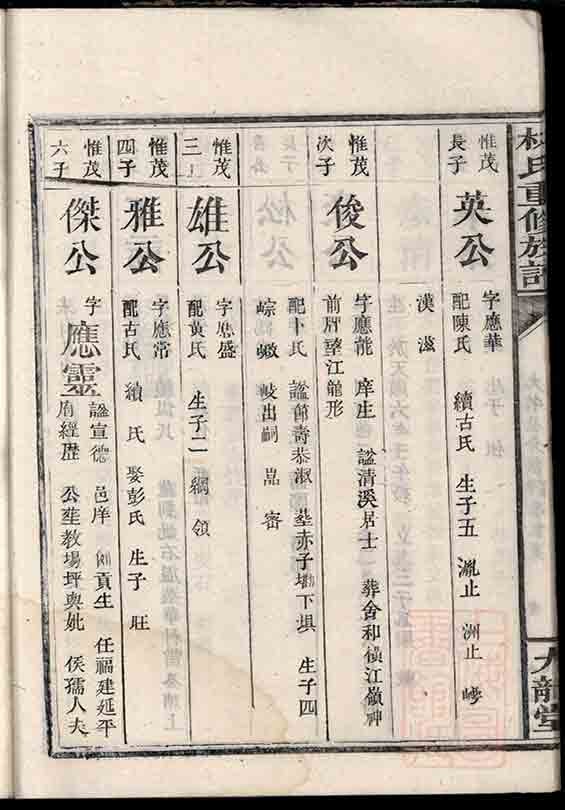 林氏重修族譜
九龍堂
惟茂
長子
英公
字應華
配陳氏 續古氏 生子五 胤止 洲止
漢 滋
惟茂
次子
俊公
字應龍 庠生 諡清溪居士 葬舍和横江嶺神
前牌望江龍形
配卜氏 諡節壽恭淑 塟赤子墈下塤 生子四
崇 巘 岐出嗣 嵓 審
惟茂
三
雄公
字應盛
配黃氏 生子二 綱 領
惟茂
四子
雅公
字應常
配古氏 續 氏 娶彭氏 生子 旺
惟茂
六子
傑公
字應靈
諡宣德 邑庠 例貢生 任福建延平
府經歷 公塟教場坪與妣 侯孺人夫